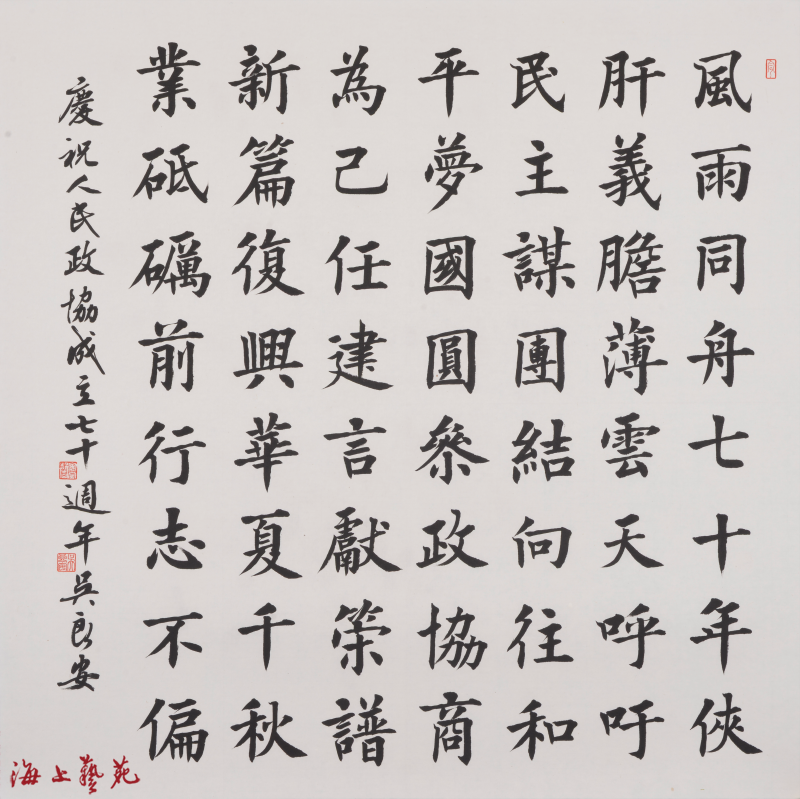 風雨同舟七十年俠
肝義膽薄雲天呼吁
民主謀團結向往和
平夢國圓參政協商
為己任建言獻策譜
新篇復興華夏千秋
業砥礪前行志不偏
慶祝人民政協成立七十週年吳良安
海上藝苑